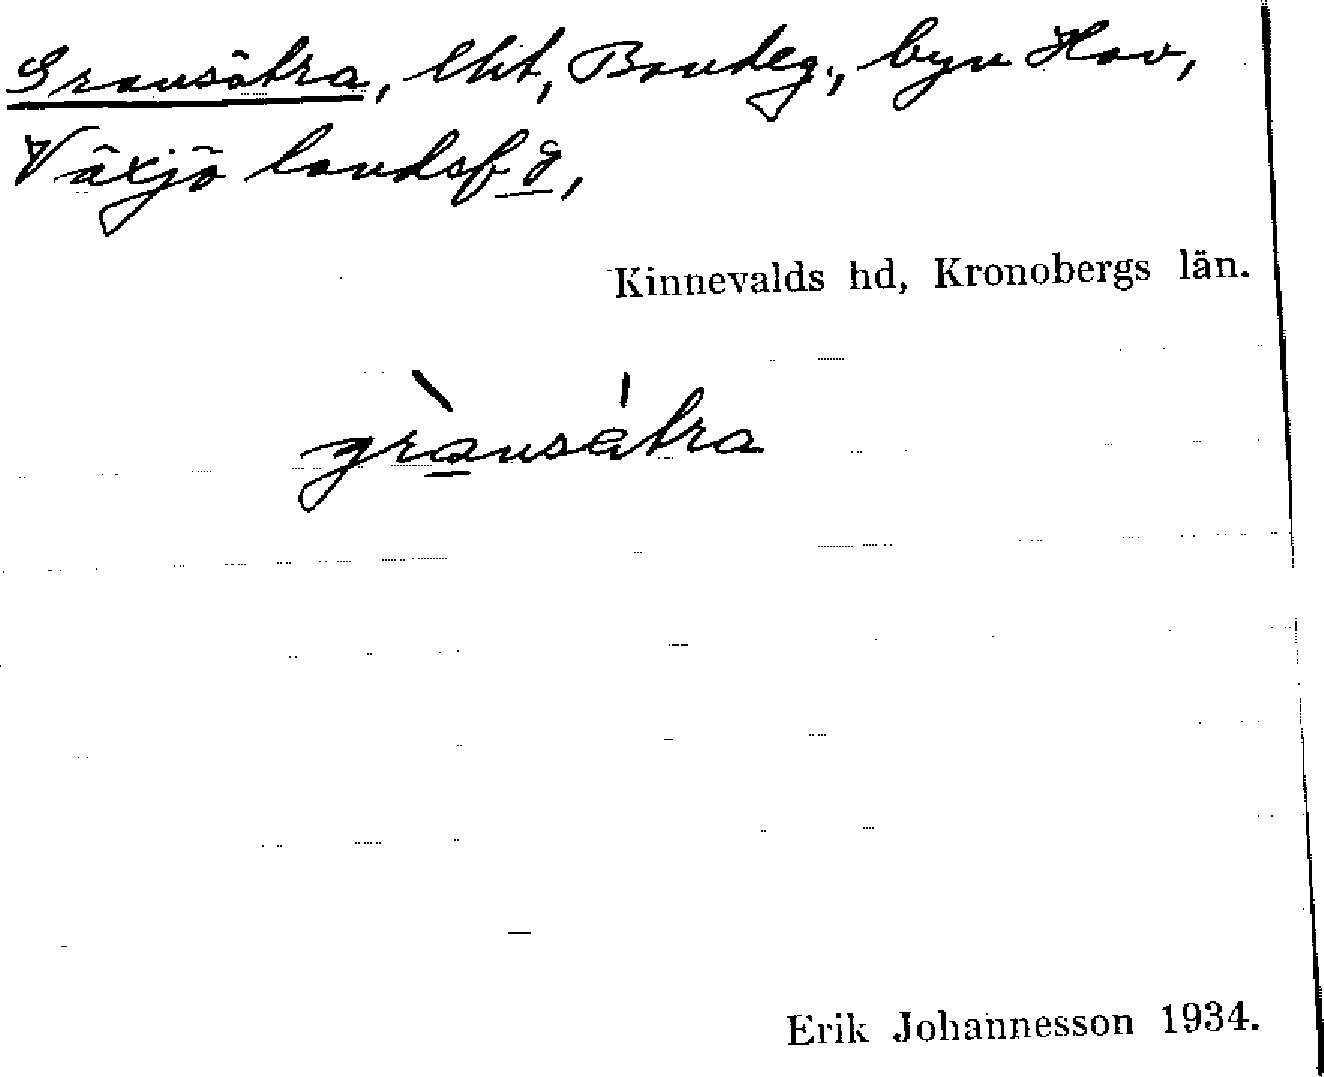 Gransätra, lht, Bondeg., byn Hov,
Växjö landsf g,
Kinnevalds hd, Kronobergs län.
grànsætra
Erik Johannesson 1934.